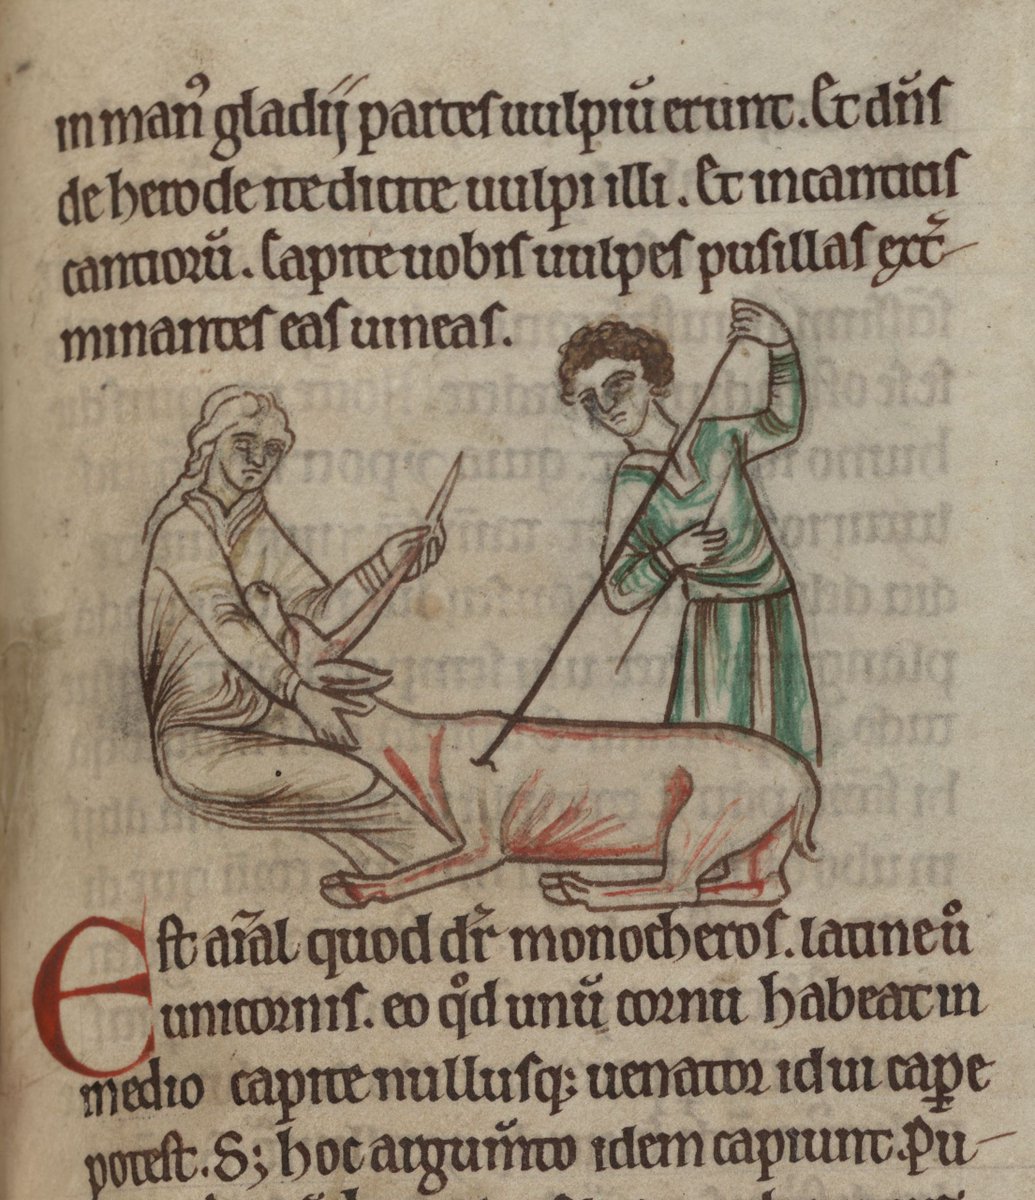 in man᾿ gladij partes uulpiū erunt. Et dn̄s
de herode ite dicite uulpi illi. Et in canticis
cantiorū. Capite uobis uulpes pusillas ext͛
minantes eas uineas.
Est aīal quod dr̄ monocheros. latine uͦ
unicornis. eo qͦd unū cornu habeat in
medio capite nullusq; uenator id ui cap̱e
potest. S; hoc argum̄to idem capiunt. Pu-